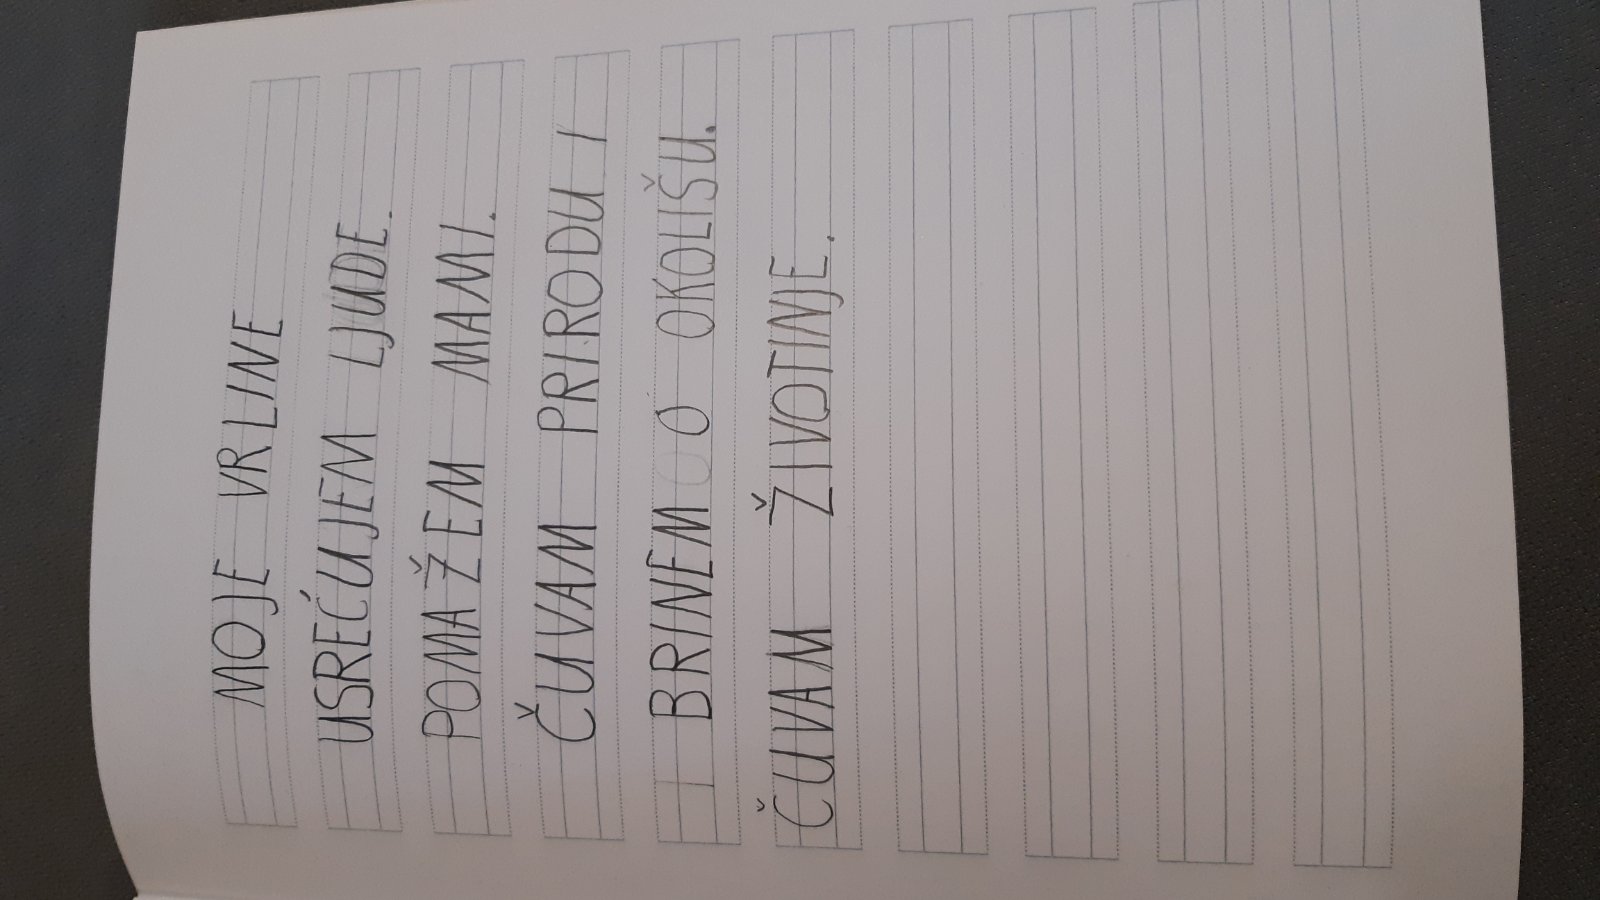 MOJE VRLINE
USREĆUJEM LJUDE.
POMAŽEM MAMI.
ČUVAM PRIRODU I
BRINEM O OKOLIŠU.
ČUVAM ŽIVOTINJE.